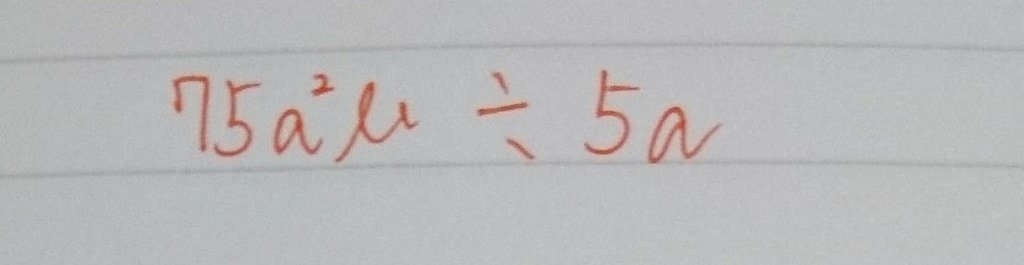 75a²μ ÷ 5a